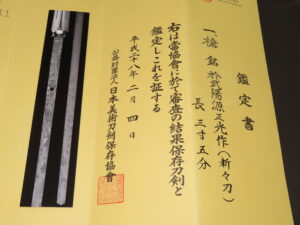 鑑定書
一、槍 銘 於武陽源正光作(新々刀)
長 三寸五分
右は當協會に於て審査の結果保存刀剣と
鑑定しこれを証する
平成二十八年 二月 四日
公益財団法人 日本美術刀剣保存協會